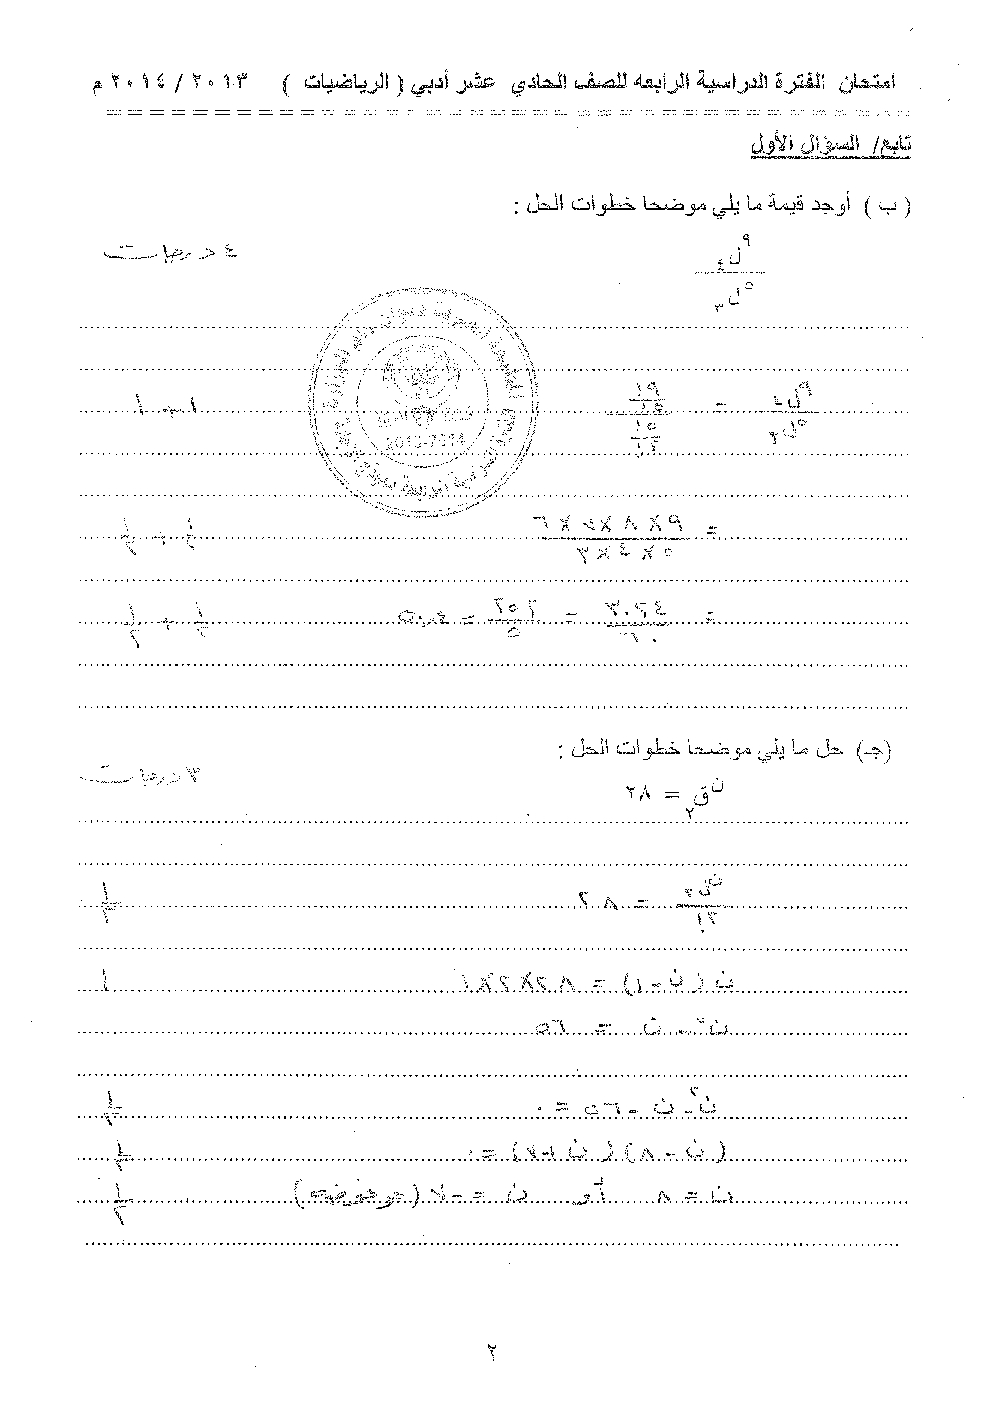 امتحان الفترة الدراسية الرابعه للصف الحادي عشر أدبي ( الرياضيات ) ٢٠١٣ / ٢٠١٤ م
تابع/ السؤال الأول
( ب ) أوجد قيمة ما يلي موضحا خطوات الحل :
٤ درجات
٩ل٤ / ٥ل٣
٩ل٤ / ٥ل٣ = (٩! / ٥!) / (٥! / ٢!) ١ + ١
= ٩×٨×٧×٦ / ٥×٤×٣ ½ + ½
= ٣٠٢٤ / ٦٠ = ٢٥٢ / ٥ = ٥٠,٤ ½ + ½
(جـ) حل ما يلي موضحا خطوات الحل :
٣ درجات
نق٢ = ٢٨
نل٢ / ٢! = ٢٨ ½
ن (ن - ١) = ٢٨×٢×١ ١
ن٢ - ن = ٥٦
ن٢ - ن - ٥٦ = ٠ ½
(ن - ٨) (ن + ٧) = ٠ ½
ن = ٨ أو ن = -٧ (مرفوضة) ½
٢
2013-2014